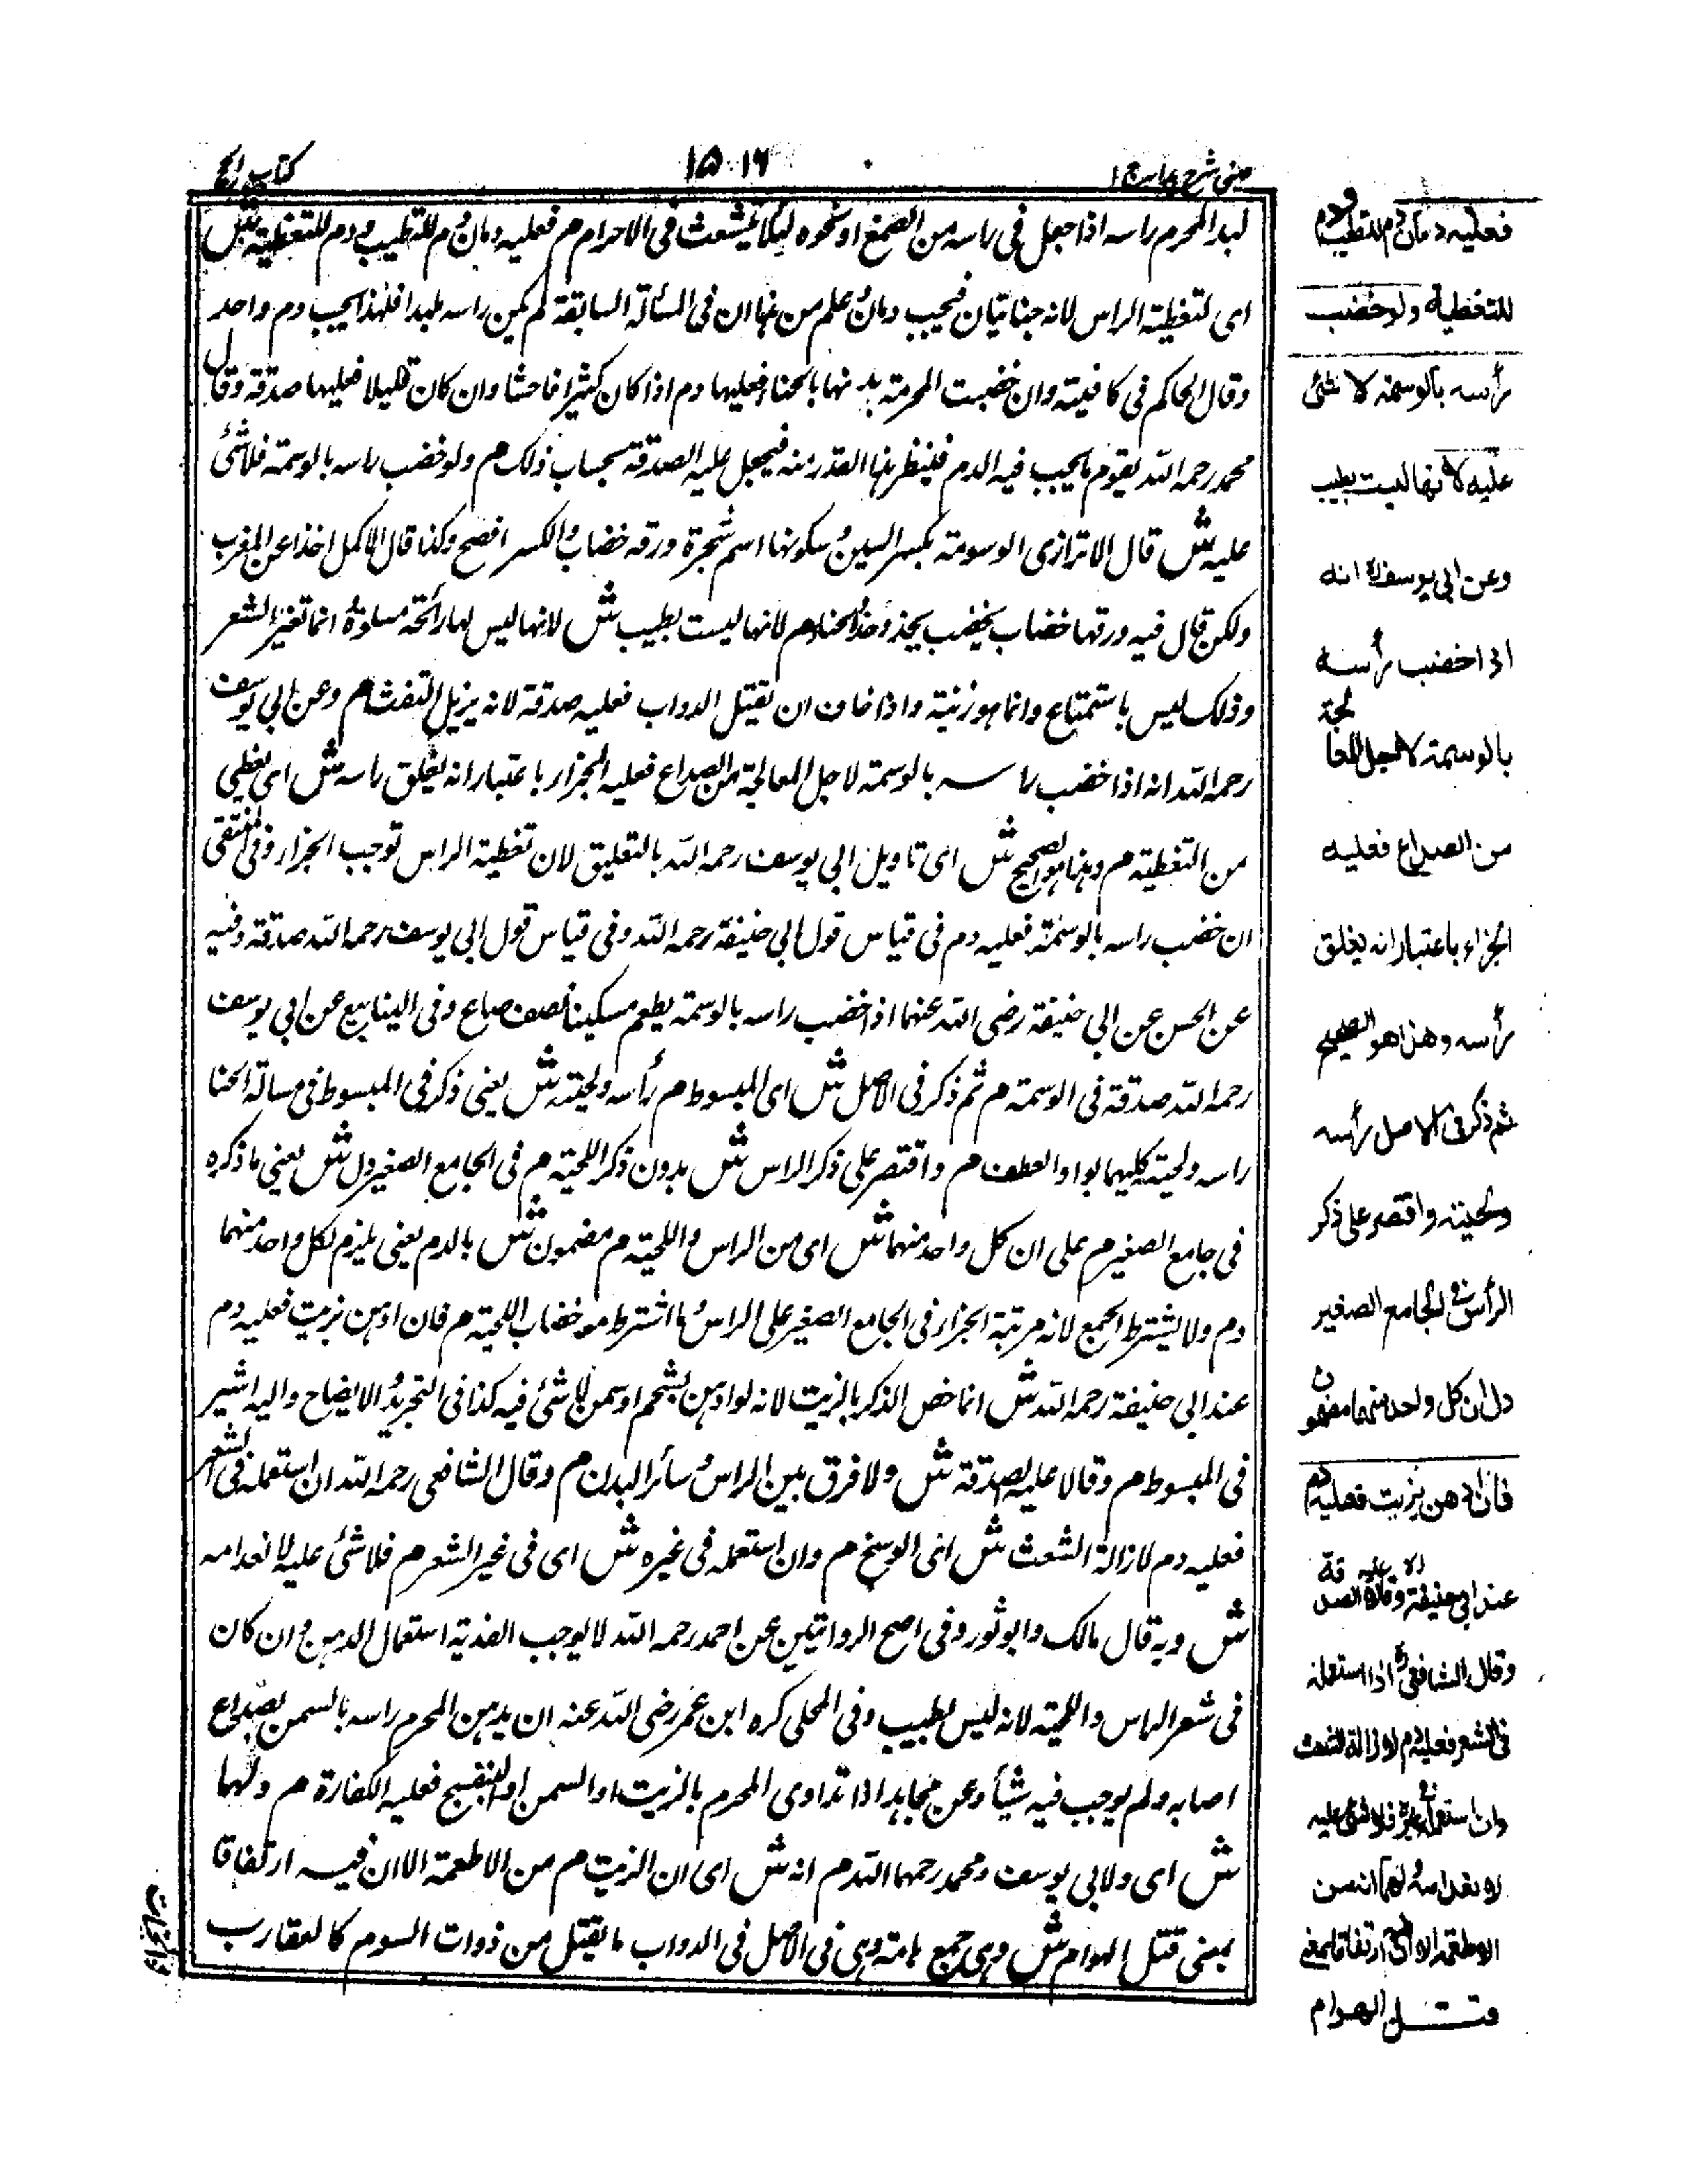 عینی شرح ہدایہ ج ۱
۱۵۱۶
کتاب الحج
لبد المحرم راسه اذا جعل فی راسه من الصمغ او نحوه لئلا یتشعث فی الاحرام م فعلیه دمان دم للتطیب و دم للتغطیة ش
ای لتغطیة الراس لانه جنایتان فیجب دمان علم من هذا ان فی المسألة السابقة لم یکن راسه ملبدا فلهذا یجب دم واحد
وقال الحاکم فی کافیته وان خضبت المحرمة یدیها بالحناء فعلیها دم اذا کان کثیرا فاحشا وان کان قلیلا فعلیها صدقة وقال
محمد رحمه الله یقوم ما یجب فیه الدم فینظر هذا القدر منه فیجعل علیه الصدقة بحساب ذلک م ولو خضب راسه بالوسمة فلا شئ
علیه ش قال الاترازی الوسومة بکسر السین و سکونها اسم شجرة ورقه خضاب والکسر افصح وکذا قال الاکمل اخذا عن المغرب
ولکن قال فیه ورقها خضاب یخضب الحناء م لانها لیست بطیب ش لانها لیس لها رائحة مستلذة انما تغیر الشعر
وذلک لیس باستمتاع وانما هو زینة واذا خاف ان یقتل الدواب فعلیه صدقة لانه یزیل التفث م وعن ابی یوسف
رحمه الله انه اذا خضب راسه بالوسمة لاجل المعالجة من الصداع فعلیه الجزاء باعتبار انه یغلق راسه ش ای یغطی
من التغطیة م وهذا هو الصحیح ش ای تاویل ابی یوسف رحمه الله بالتعلیق لان تغطیة الراس توجب الجزاء وفی المنتقی
ان خضب راسه بالوسمة فعلیه دم فی قیاس قول ابی حنیفة رحمه الله وفی قیاس قول ابی یوسف رحمه الله صدقة وفیه
عن الحسن عن ابی حنیفة رضی الله عنهما اذا خضب راسه بالوسمة یطعم مسکینا نصف صاع وفی الینابیع عن ابی یوسف
رحمه الله صدقة فی الوسمة م ثم ذکر فی الاصل ش ای المبسوط م رأسه ولحیته ش یعنی ذکر فی المبسوط فی مسالة الحنا
راسه ولحیته کلیهما بواو العطف م واقتصر علی ذکر الراس ش بدون ذکر اللحیة م فی الجامع الصغیر دل ش یعنی ما ذکره
فی جامع الصغیر م علی ان کل واحد منهما ش ای من الراس واللحیة م مضمون ش بالدم یعنی یلزم لکل واحد منهما
دم ولا یشترط الجمع لانه مرتبة الجزاء فی الجامع الصغیر علی الراس خضاب اللحیة م فان ادهن بزیت فعلیه دم
عند ابی حنیفة رحمه الله ش انما خص الذکر بالزیت لانه لو ادهن بشحم او سمن لا شئ فیه کذا فی التجرید والایضاح والیه اشیر
فی المبسوط م وقالا علیه الصدقة ش ولا فرق بین الراس و سائر البدن م وقال الشافعی رحمه الله ان استعمله فی الشعر
فعلیه دم لازالة الشعث ش ای الوسخ م وان استعمله فی غیره ش ای فی غیر الشعر م فلا شئ علیه لانعدامه
ش وبه قال مالک وابو ثور وفی اصح الروایتین عن احمد رحمه الله لا یوجب الفدیة استعمال الدهن وان کان
فی شعر الراس واللحیة لانه لیس بطیب وفی المحلی کره ابن عمر رضی الله عنه ان یدهن المحرم راسه بالسمن بصداع
اصابه ولم یوجب فیه شیأ وعن مجاهد اذا تداوی المحرم بالزیت او السمن او البنفسج فعلیه الکفارة م ولهما
ش ای ولابی یوسف ومحمد رحمهما الله م انه ش ای ان الزیت م من الاطعمة الا ان فیه ارتفاقا
بمعنی قتل الهوام ش وهی جمع هامة وهی فی الاصل فی الدواب ما یقتل من ذوات السوم کالعقارب
فعلیه دمان دم للتطیب ودم
للتغطیة ولو خضب
رأسه بالوسمة لا شئ
علیه لانها لیست بطیب
وعن ابی یوسف انه
اذا خضب رأسه
بالوسمة لاجل المعالجة
من الصداع فعلیه
الجزاء باعتبار انه یغلق
رأسه وهذا هو الصحیح
ثم ذکر فی الاصل رأسه
ولحیته واقتصر علی ذکر
الرأس فی الجامع الصغیر
دل ان کل واحد منهما مضمون
فان ادهن بزیت فعلیه دم
عند ابی حنیفة وقالا علیه الصدقة
وقال الشافعی اذا استعمله
فی الشعر فعلیه دم لازالة الشعث
وان استعمله فی غیره فلا شئ علیه
لانعدامه ولهما انه من
الاطعمة الا ان فیه ارتفاقا بمعنی
قتل الهوام